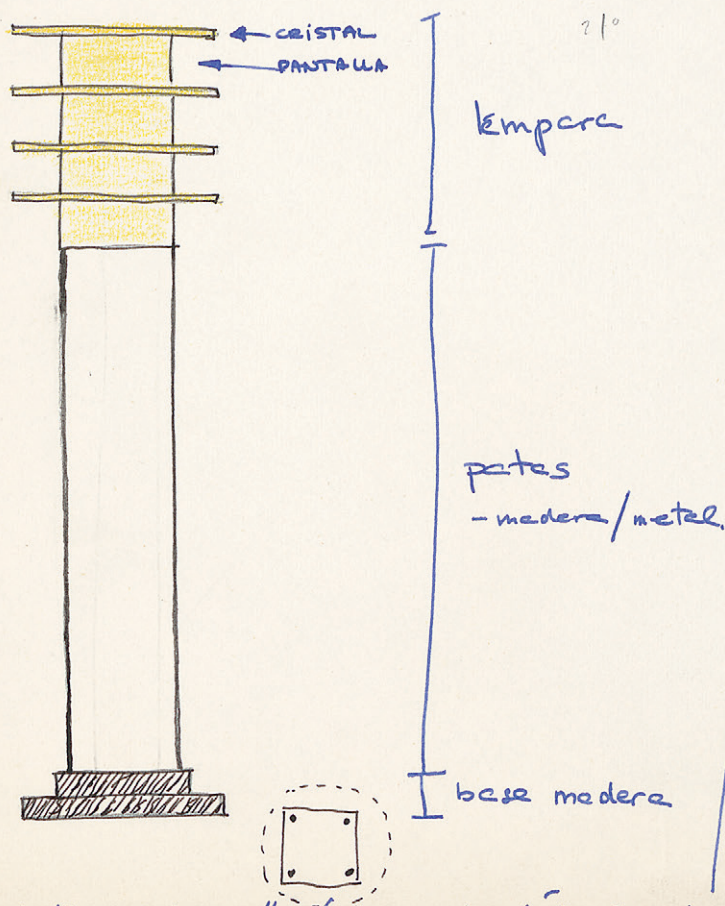 CRISTAL
PANTALLA
lampara
patas
- madera/metal.
base madera